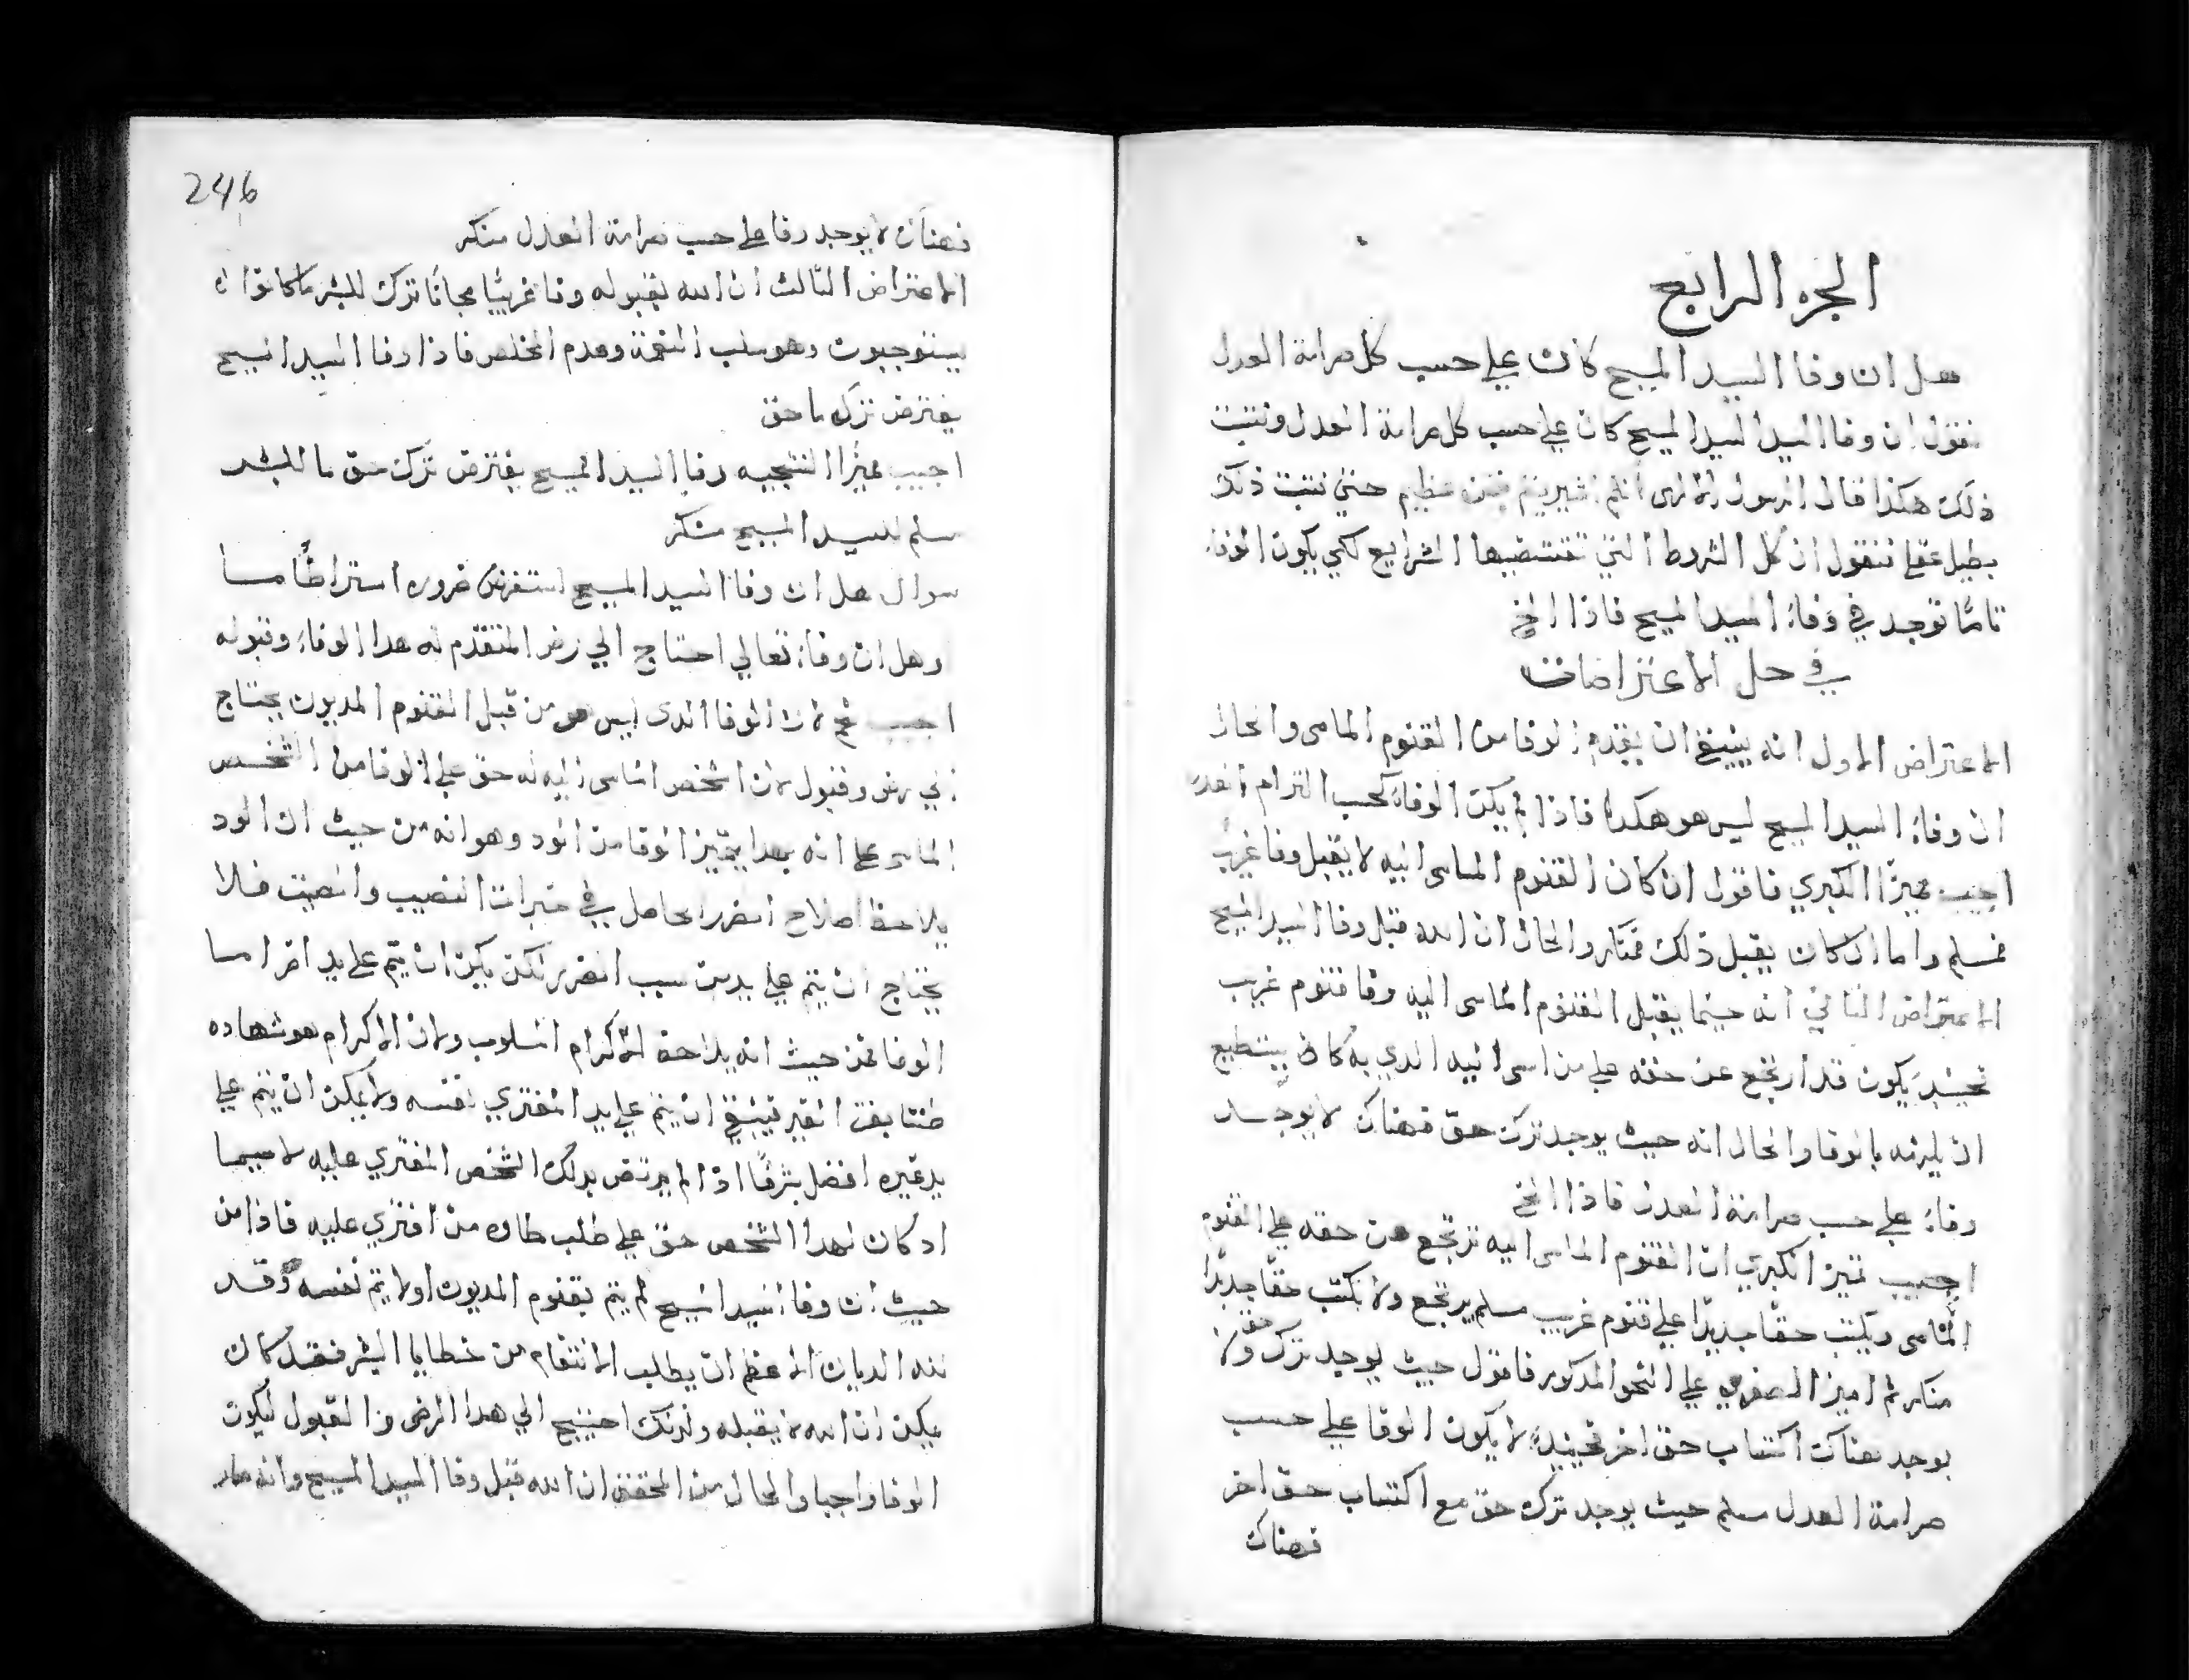 الجزء الرابع
هل ان وفا السيد المسيح كان علي حسب كل صرامة العدل
نقول ان وفا السيد المسيح كان علي حسب كل صرامة العدل ونثبت
ذلك هكذا قال الرسول انكم اشتريتم بثمن عظيم حتي نثبت ذلك
عقلا فنقول ان كل الشروط التي تقتضيها الشرايع لكي يكون الوفا
تامًا توجد في وفاء السيد المسيح فاذا الخ
في حل الاعتراضات
الاعتراض الاول انه ينبغي ان يقدم الوفا من القنوم الماسى والحال
ان وفاء السيد المسيح ليس هو هكذا فاذا لم يكن الوفاء كحسب التزام العدل
اجيب مميزًا الكبري فاقول ان كان القنوم الماسى اليه لا يقبل وفا غريب
فمسلم واما ان كان يقبل ذلك فمنكر والحال ان الله قبل وفا السيد المسيح
الاعتراض الثاني انه حينما يقبل القنوم الماسى اليه وفا قنوم غريب
فحينيذٍ يكون قد ارتجع عن حقه علي من اسى اليه الدي به كان يستطيع
ان يلزمه بالوفا والحال انه حيث يوجد ترك حق فهناك لا يوجد
وفاء علي حسب صرامة العدل فاذا الخ
اجيب بتميز الكبري ان القنوم الماسى اليه يرتجع عن حقه علي القنوم
الماسى ويكتسب حقًا جديدًا علي قنوم غريب مسلم يرتجع ولا يكتسب حقًا جديدًا
منكر ثم اميز الصغري علي النحو المدكور فاقول حيث يوجد ترك حق ولا
يوجد هناك اكتساب حق اخر فحينيذٍ لا يكون الوفا علي حسب
صرامة العدل مسلم حيث يوجد ترك حق مع اكتساب حق اخر
فهناك
246
فهناك لا يوجد وفا علي حسب صرامة العدل منكر
الاعتراض الثالث ان الله بقبوله وفا غريبًا مجانًا ترك للبشر ما كانوا
يستوجبون وهو سلب النعمة وعدم الخلاص فاذا وفا السيد المسيح
يفترض ترك ما حق
اجيب مميزًا النتيجيه وفا السيد المسيح يفترض ترك حق ما للبشر
مسلم للسيد المسيح منكر
سوال هل ان وفا السيد المسيح استفرض ضروره اشتراطًا ما
وهل ان وفاء تعالي احتاج الي رضى المتقدم له هدا الوفاء وقبوله
اجيب نعم لان الوفا الدى ليس هو من قبل القنوم المديون يحتاج
الي رضى وقبول لان الشخص الماسى اليه له حق علي الوفا من الشخص
الماسى علي انه بهدا يتميز الوفا من الود وهو انه من حيث ان الود
يلاحظ اصلاح الضرر الحاصل في خيرات النصيب والصيت فلا
يحتاج ان يتم علي يد من سبب الضرر لكن يمكن ان يتم علي يد اخر اما
الوفا فمن حيث انه يلاحظ الاكرام المسلوب ولان الاكرام هو شهاده
ما بفضل الغير فينبغي ان يتم علي يد المفتري نفسه ولا يمكن ان يتم علي
يد غيره افضل شرفًا اذا لم يرتض بدلك الشخص المفتري عليه لا سيما
اد كان لهدا الشخص حق علي طلب من افترى عليه فاذا من
حيث ان وفا السيد المسيح لم يتم بقنوم المديون اولا يتم نفسه وقد
لله الديان الاعظم ان يطلب الانتقام من خطايا البشر فقد كان
يمكن ان الله لا يقبله ولدلك احتيج الي هدا الرضى والقبول ليكون
الوفا واجبا والحال من المحقق ان الله قبل وفا السيد المسيح وانه صار